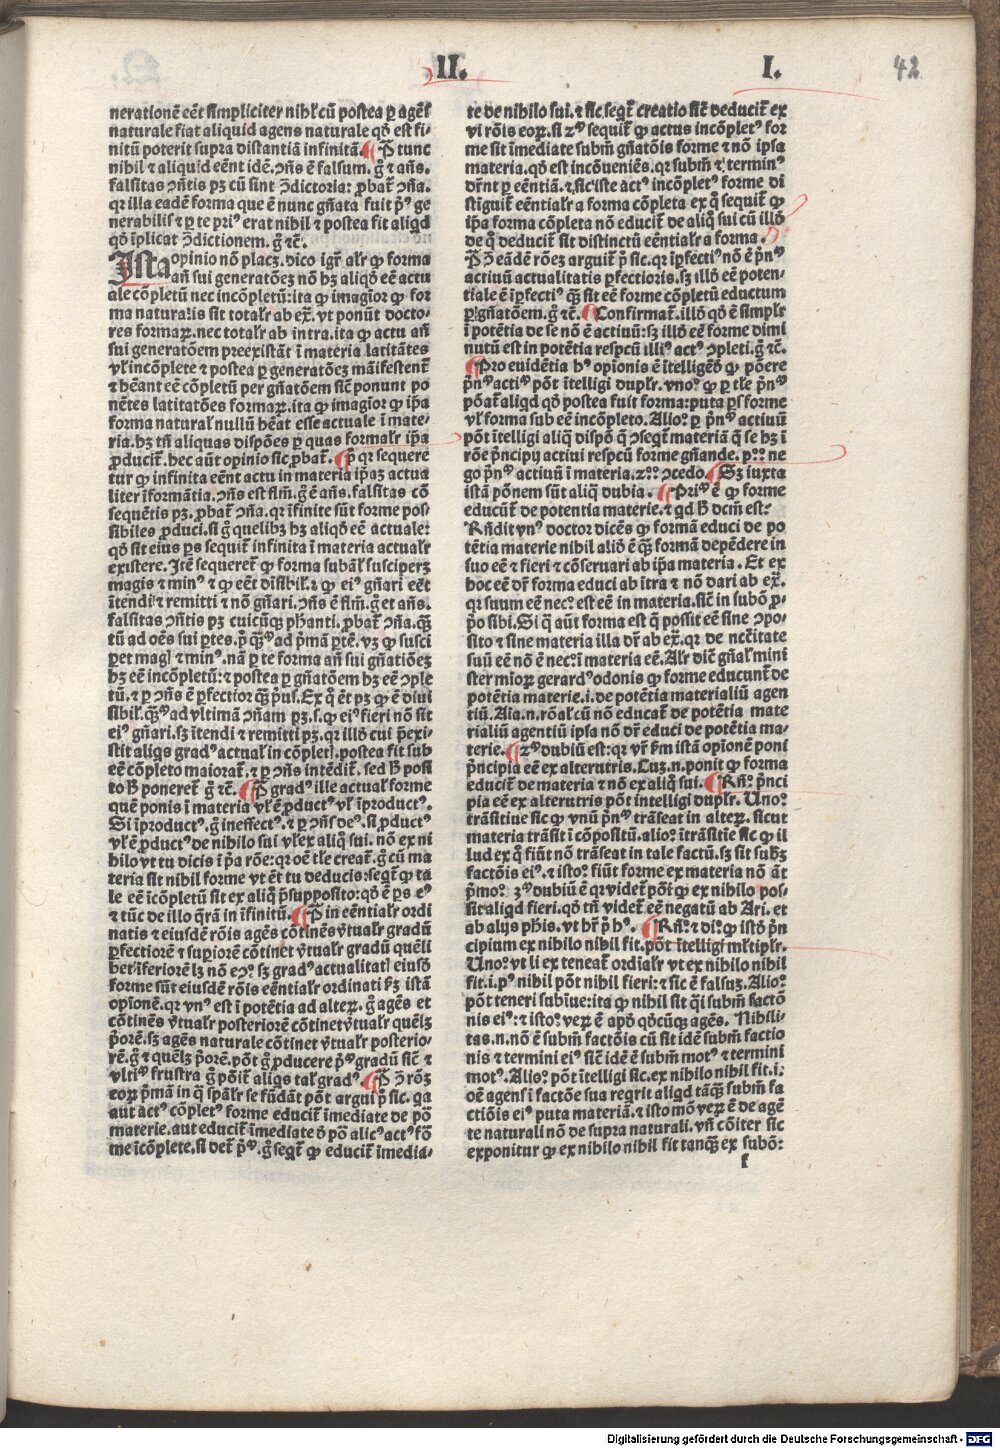 II. I. 42
neratione̅ ee̅t simpliciter nihl' cu̅ postea ꝑ age̅s
naturale fiat aliquid agens naturale qd̅ est fi-
nitu̅ poterit supra distantia̅ infinita̅. ¶ P̅ tunc
nihil ⁊ aliquid ee̅nt ide̅. ꝯn̅s e̅ falsum. g̅ ⁊ an̅s.
falsitas ꝯn̅tis pꝫ cu̅ sint ꝯ̅dictoria: ꝓbat̅ ꝯn̅a.
qꝛ illa eade̅ forma que e̅ nunc gn̅ata fuit p̅ꝰ ge
nerabilis ⁊ ꝑ te priꝰ erat nihil ⁊ postea fit aliqd
qd̅ i̅plicat ꝯ̅dictionem. g̅ ⁊c̅.
Ista opinio no̅ placꝫ. dico igr̅ alr̅ ꝙ forma
an̅ sui generato̅eꝫ no̅ hꝫ aliqd̅ ee̅ actu
ale co̅pletu̅ nec inco̅pletu̅: ita ꝙ imagi̅or ꝙ for
ma naturalis sit totalr̅ ab ex̅. vt ponu̅t docto-
res formaꝝ. nec totalr̅ ab intra. ita ꝙ actu an̅
sui generato̅em preexista̅t i̅ materia latita̅tes
vl' inco̅plete ⁊ postea ꝑ generato̅eꝫ ma̅ifestent̅
⁊ hea̅nt ee̅ co̅pletu̅ per gn̅ato̅em sic̅ ponunt po
ne̅tes latitato̅es formaꝝ. ita ꝙ imagi̅or ꝙ ip̅a
forma natural' nullu̅ he̅at esse actuale i̅ mate-
ria. hꝫ tn̅ aliquas dispo̅es ꝑ quas formalr̅ ip̅a
ꝓducit̅. hec au̅t opinio sic ꝓbat̅. ¶ p̅ qꝛ sequere
tur ꝙ infinita ee̅nt actu in materia ip̅aꝫ actua
liter i̅forma̅tia. ꝯn̅s est flm̅. g̅ e̅ an̅s. falsitas co̅
seque̅tis pꝫ. ꝓbat̅ ꝯn̅a. qꝛ i̅finite su̅t forme pos-
sibiles ꝓduci. si g̅ quelibꝫ hꝫ aliqd̅ ee̅ actuale:
qd̅ sit eius ꝑs sequit̅ infinita i̅ materia actualr̅
existere. Ite̅ sequeret̅ ꝙ forma subal̅ susciperꝫ
magis ⁊ minꝰ ⁊ ꝙ ee̅t di̅sibil'. ⁊ ꝙ eiꝰ gn̅ari ee̅t
i̅tendi ⁊ remitti ⁊ no̅ gn̅ari. ꝯn̅s e̅ flm̅. g̅ et an̅s.
falsitas ꝯn̅tis pꝫ cuicu̅qꝫ ph̅anti. ꝓbat̅ ꝯn̅a. qꝫ̅
tu̅ ad oe̅s sui ꝑtes. p̅ qꝫ̅ꝰ ad p̅ma̅ ꝑte̅. vꝫ ꝙ susci
ꝑet magl' ⁊ minꝰ. na̅ ꝑ te forma an̅ sui gn̅atio̅eꝫ
hꝫ ee̅ inco̅pletu̅: ⁊ postea ꝑ gn̅ato̅em hꝫ ee̅ ꝯple
tu̅. ⁊ ꝑ ꝯn̅s e̅ ꝑfectior qꝫ̅ p̅us. Ex q̅ e̅t pꝫ ꝙ e̅ diui
sibil'. qꝫ̅ꝰ ad vltima̅ ꝯn̅am pꝫ. s. ꝙ eiꝰ fieri no̅ sit
eiꝰ gn̅ari. sꝫ i̅tendi ⁊ remitti pꝫ. qꝛ illd̅ cui p̅exi-
stit aliqs gradꝰ actual' in co̅plet'. postea fit sub
ee̅ co̅pleto maiorat̅. ⁊ ꝑ ꝯn̅s inte̅dit̅. sed h̅ posi
to h̅ poneret̅ g̅ ⁊c̅. ¶ P̅ gradꝰ ille actual' forme
que̅ ponis i̅ materia vl' e̅ ꝓductꝰ vl' i̅productꝰ.
Si i̅productꝰ. g̅ ineffectꝰ. ⁊ ꝑ ꝯn̅s deꝰ. si ꝓductꝰ
vl' e̅ ꝓductꝰ de nihilo sui vl' ex aliq̅ sui. no̅ ex ni
hilo vt tu dicis i̅ p̅a ro̅e: qꝛ oe̅ tl'e creat̅. g̅ cu̅ ma
teria sit nihil forme vt e̅t tu deducis: seqt̅ ꝙ ta
le ee̅ ico̅pletu̅ sit ex aliq̅ p̅supposito: qd̅ e̅ ꝑs eꝰ
⁊ tu̅c de illo q̅ra̅ in i̅finitu̅. ¶ P̅ in ee̅ntialr̅ ordi
natis ⁊ eiusde̅ ro̅is age̅s co̅tine̅s v̅tualr̅ gradu̅
ꝑfectiore̅ ⁊ suꝑiore̅ co̅tinet v̅tualr̅ gradu̅ queli̅
bet i̅feriore̅ lꝫ no̅ eꝯꝰ. sꝫ gradꝰ actualitat' eiusd̅
forme su̅t eiusde̅ ro̅is ee̅ntialr̅ ordinati ẜm ista̅
opione̅. qꝛ vnꝰ est i̅ pote̅tia ad alteꝝ. g̅ age̅s et
co̅tine̅s v̅tualr̅ posteriore̅ co̅tinet v̅tualr̅ quelꝫ
p̅ore̅. sꝫ age̅s naturale co̅tinet v̅tualr̅ posterio-
re̅. g̅ ⁊ quelꝫ p̅ore̅. po̅t g̅ ꝓducere p̅ꝰ gradu̅ sic̅ ⁊
vlti̅ꝰ frustra g̅ po̅it̅ aliqs tal' gradꝰ. ¶ P̅ ꝯ̅ ro̅ꝫ
eoꝝ p̅ma̅ in q̅ sp̅alr̅ se fu̅da̅t po̅t argui p̅ sic. qa
aut actꝰ co̅pletꝰ forme educit̅ i̅mediate de po̅
materie. aut educit̅ i̅mediate d̅ po̅ alicꝰ actꝰ fo̅
me ico̅plete. si det̅ p̅ꝰ. g̅ seqt̅ ꝙ educit̅ i̅media-
te de nihilo sui. ⁊ sic seqt̅ creatio sic̅ deducit̅ ex
vi ro̅is eoꝝ. si 2ꝰ sequit̅ ꝙ actus inco̅pletꝰ for
me sit i̅mediate subm̅ gn̅ato̅is forme ⁊ no̅ ipsa
materia. qd̅ est inco̅uenie̅s. qꝛ subm̅ ⁊ terminꝰ
dr̅nt ꝑ ee̅ntia̅. ⁊ sic iste actꝰ inco̅pletꝰ forme di
stiguit̅ ee̅ntialr̅ a forma co̅pleta ex q̅ sequit̅ ꝙ
ip̅a forma co̅pleta no̅ educit̅ de aliq̅ sui cu̅ illd̅
de q̅ deducit̅ sit distinctu̅ ee̅ntialr̅ a forma.
P̅ ꝯ̅ eade̅ ro̅eꝫ arguit̅ p̅ sic. qꝛ ip̅fectiꝰ no̅ e̅ p̅nꝰ
actiuu̅ actualitatis ꝑfectioris. sꝫ illd̅ ee̅ poten-
tiale e̅ ip̅fectiꝰ qꝫ̅ sit ee̅ forme co̅pletu̅ eductum
ꝑ gn̅ato̅em. g̅ ⁊c̅. ¶ Confirmat̅. illd̅ qd̅ e̅ simplr̅
i̅ pote̅tia de se no̅ e̅ actiuu̅: sꝫ illd̅ ee̅ forme dimi
nutu̅ est in pote̅tia respcu̅ illiꝰ actꝰ ꝯpleti. g̅ ⁊c̅.
¶ Pro euide̅tia hꝰ opionis e̅ i̅tellige̅d̅ ꝙ po̅ere
p̅nꝰ actiꝰ po̅t i̅telligi duplr̅. vnoꝰ ꝙ ꝑ tl'e p̅nꝰ
po̅at̅ aliqd ꝙd postea fuit forma: puta ꝑs forme
vl' forma sub ee̅ inco̅pleto. Alioꝰ ꝑ p̅nꝰ actiuu̅
po̅t i̅telligi aliq̅ dispo̅ q̅ ꝯseqt̅ materia̅ q̅ se hꝫ i̅
ro̅e p̅ncipij actiui respcu̅ forme gn̅ande. pꝰꝰ ne
go p̅nꝰ actiuu̅ i̅ materia. 2ꝰꝰ ꝯcedo. ¶ Sꝫ iuxta
ista̅ po̅nem su̅t aliq̅ dubia. ¶ Priꝰ e̅ ꝙ forme
educu̅t̅ de potentia materie. ⁊ qd h̅ dcm̅ est:
Rn̅dit vnꝰ doctor dice̅s ꝙ forma̅ educi de po
te̅tia materie nihil alid̅ e̅ qꝫ̅ forma̅ depe̅dere in
suo ee̅ ⁊ fieri ⁊ co̅seruari ab ip̅a materia. Et ex
hoc ee̅ dr̅ forma educi ab i̅tra ⁊ no̅ dari ab ex̅.
qꝛ suum ee̅ necꝰ est ee̅ in materia. sic̅ in subo̅ ꝓ-
p̅o sibi. Si q̅ au̅t forma est q̅ possit ee̅ sine ꝯpo-
sito ⁊ sine materia illa dr̅ ab ex̅. qꝛ de nc̅citate
suu̅ ee̅ no̅ e̅ necꝰ i̅ materia ee̅. Alr̅ dic̅ gn̅al' mini
ster mioꝝ gerardꝰ odonis ꝙ forme educunt̅ de
pote̅tia materie. i. de pote̅tia materialiu̅ agen
tiu̅. Aia. n. ro̅al' cu̅ no̅ educat̅ de pote̅tia mate
rialiu̅ agentiu̅ ipsa no̅ dr̅ educi de pote̅tia ma-
terie. ¶ 2ꝰ dubiu̅ est: qꝛ vr̅ ẜm ista̅ opione̅ poni
p̅ncipia ee̅ ex alterutris. Cuꝫ. n. ponit ꝙ forma
educit̅ de materia ⁊ no̅ ex aliq̅ sui. ¶ Rn̅. p̅nci
pia ee̅ ex alterutris po̅t intelligi duplr̅. Unoꝰ
tra̅sitiue sic ꝙ vnu̅ p̅nꝰ tra̅seat in alteꝝ. sicut
materia tra̅sit i̅ co̅positu̅. alioꝰ i̅tra̅sitie sic ꝙ il
lud ex q̅ fiu̅t no̅ tra̅seat in tale factu̅. sꝫ sit subꝫ
facto̅is eiꝰ. ⁊ istoꝰ fiu̅t forme ex materia no̅ a̅t
p̅moꝰ. 3ꝰ dubiu̅ e̅ qꝛ videt̅ po̅t ꝙ ex nihilo pos-
sit aliqd fieri. qd̅ tn̅ videt̅ ee̅ negatu̅ ab Ari. et
ab alijs ph̅is. vt hr̅ p̅ hꝰ. ¶ Rn̅. ⁊ diꝰ ꝙ istd̅ p̅n
cipium ex nihilo nihil fit. po̅t i̅telligi ml̅tiplr̅.
Unoꝰ vt li ex teneat̅ ordi̅alr̅ vt ex nihilo nihil
fit. i. pꝰ nihil po̅t nihil fieri: ⁊ sic e̅ falsuꝫ. Alioꝰ
po̅t teneri subi̅ue: ita ꝙ nihil sit q̅i subm̅ facto̅
nis eiꝰ: ⁊ istoꝰ veꝝ e̅ apd̅ qd̅cu̅qꝫ age̅s. Nihili-
tas. n. no̅ e̅ subm̅ facto̅is cu̅ sit ide̅ subm̅ factio
nis ⁊ termini eiꝰ sic̅ ide̅ e̅ subm̅ motꝰ ⁊ termini
motꝰ. Alioꝰ po̅t i̅telligi sic. ex nihilo nihil fit. i.
oe̅ agens i̅ facto̅e sua reqrit aliqd ta̅qꝫ subm̅ fa
ctio̅is eiꝰ puta materia̅. ⁊ isto mo̅ veꝝ e̅ de age̅
te naturali no̅ de supra naturali. vn̅ co̅iter sic
exponitur ꝙ ex nihilo nihil fit tanqꝫ ex subo̅:
f
Digitalisierung gefördert durch die Deutsche Forschungsgemeinschaft - DFG